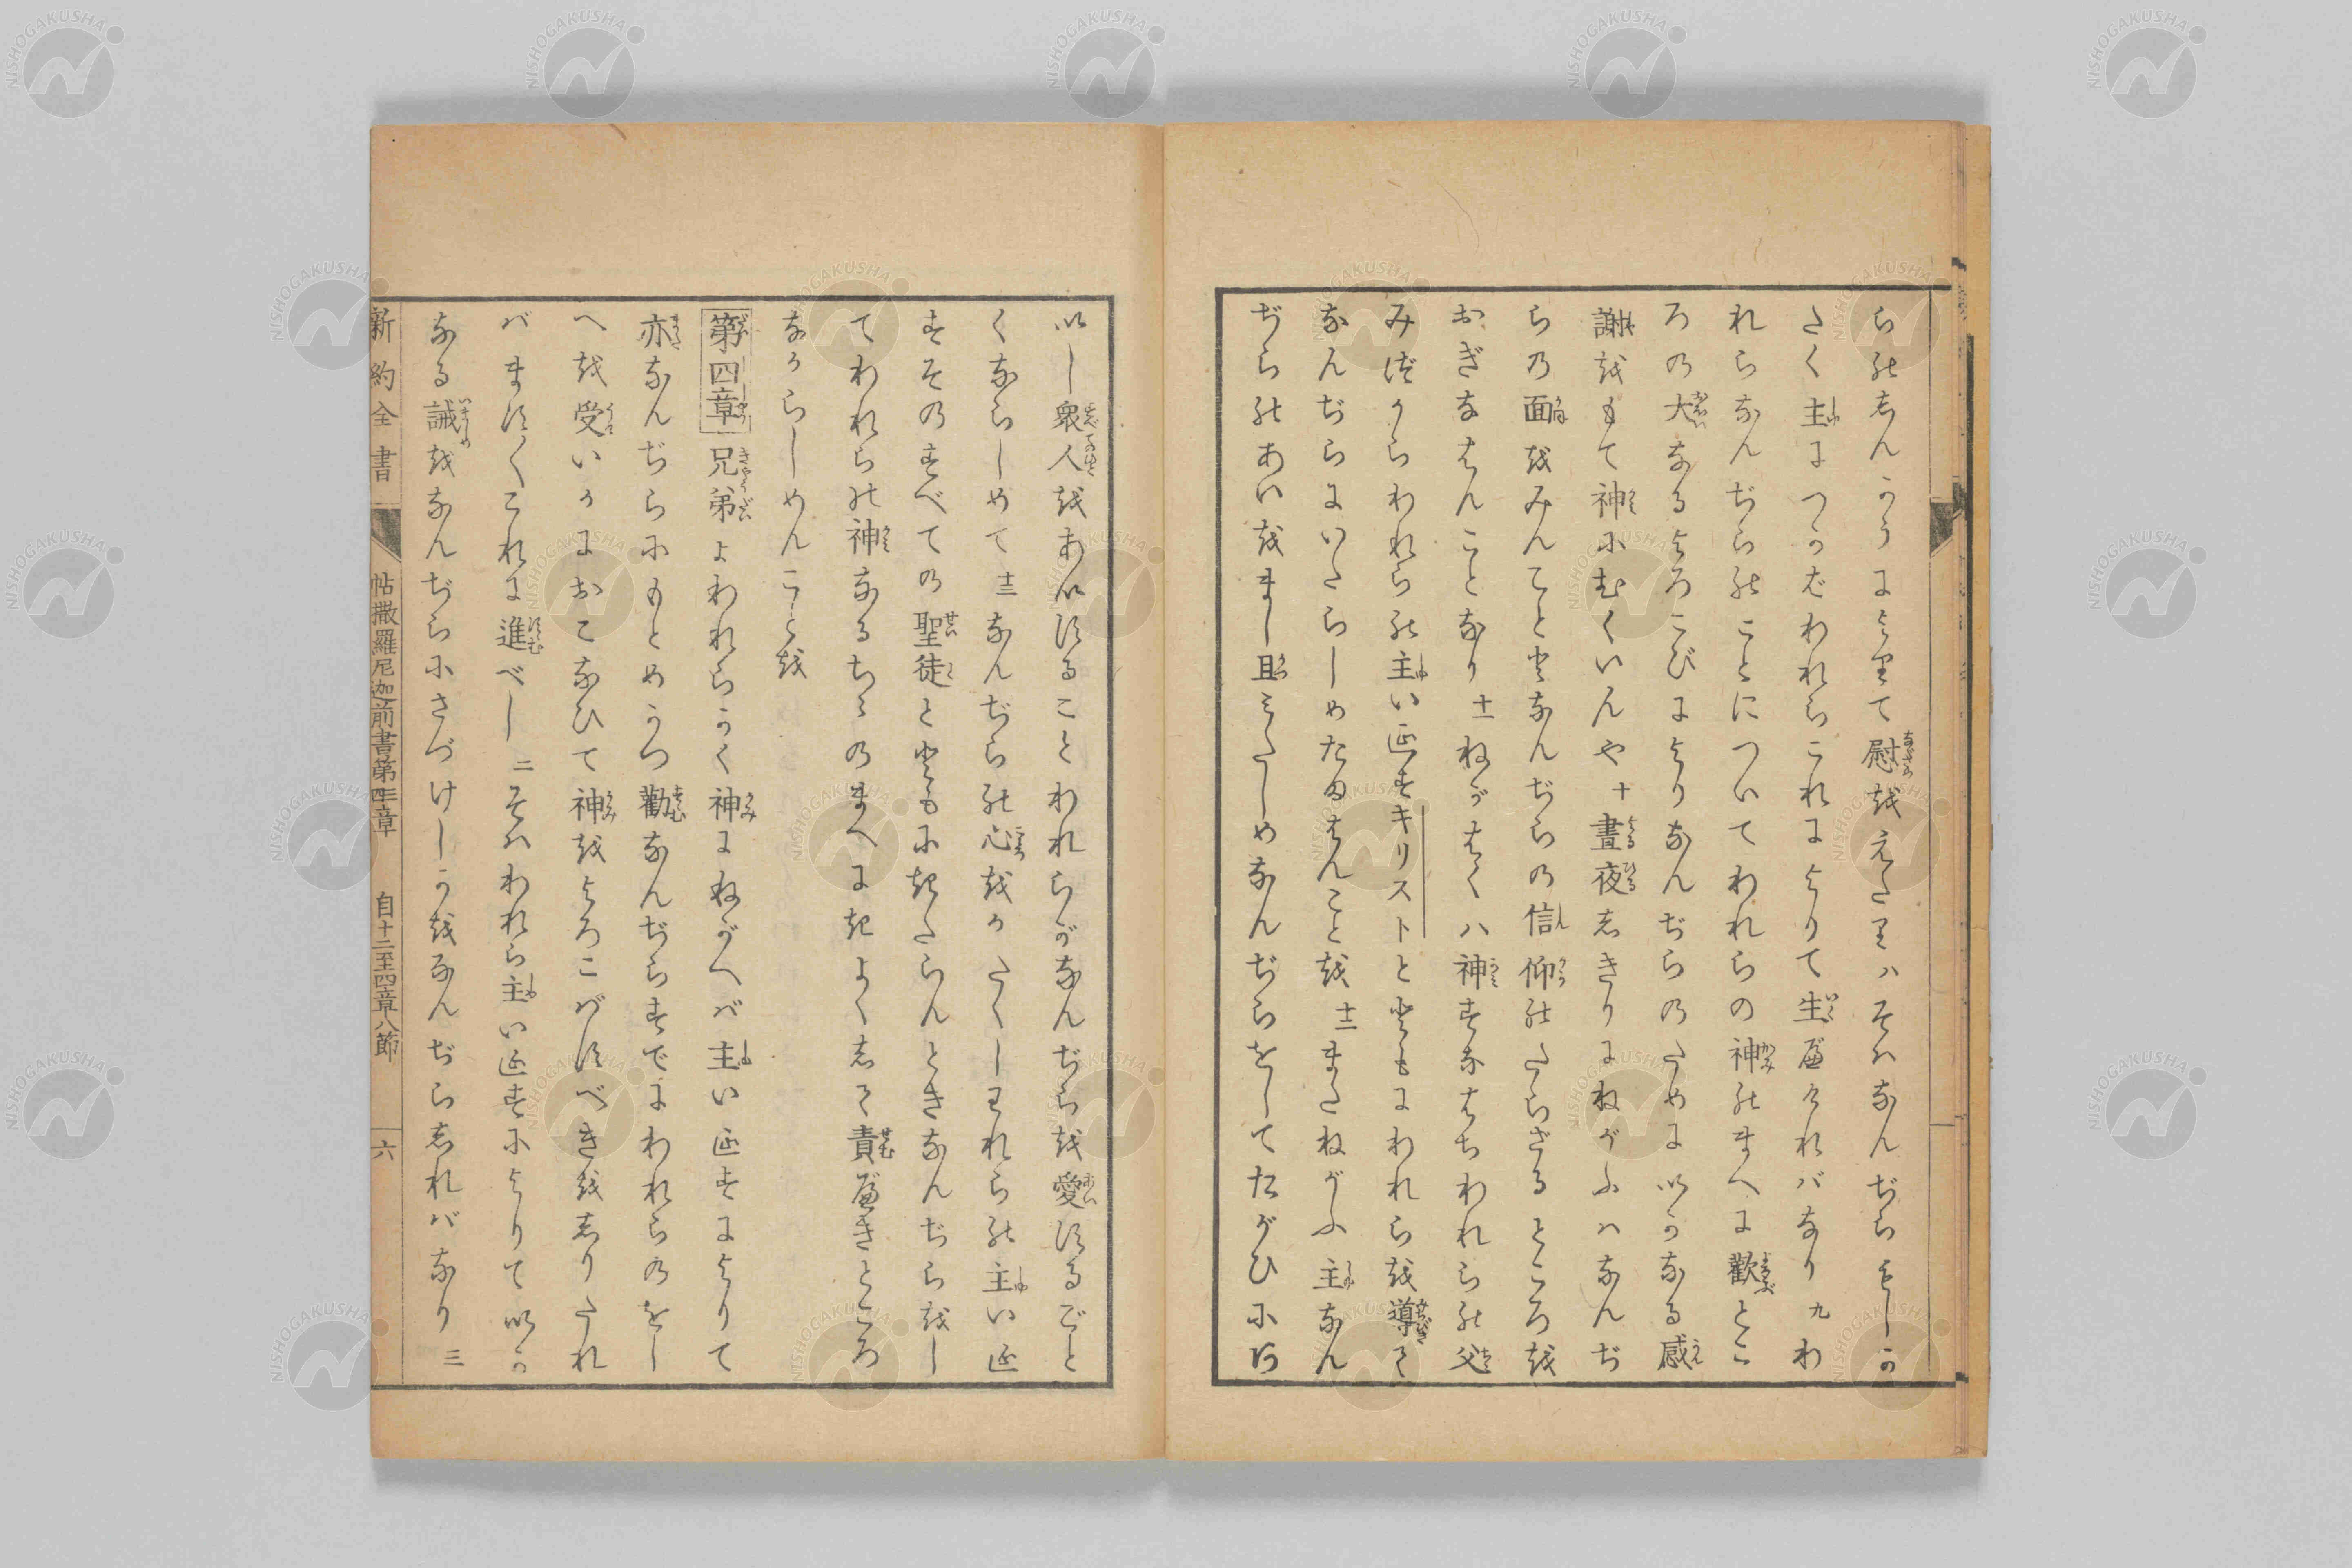 らのしんかうによりて慰をえたりハそハなんぢらもしか
たく主につかばわれらこれによりて生べけれバなり九わ
れらなんぢらのことについてわれらの神のまへに歡とこ
ろの大なるよろこびによりなんぢらのために以かなる感
謝をもて神にむくいんや十晝夜しきりにねがふハなんぢ
らの面をみんことと尓なんぢらの信仰のたらざるところを
おぎなはんことなり十一ねがはくハ神すなはちわれらの父
みづからわれらの主いゑすキリストとともにわれらを導て
なんぢらにいたらしめたまはんことを十二またねがふ主なん
ぢらのあいをまし且みたしめなんぢらをしてたがひにお
以し衆人をあいすることわれらがなんぢらを愛するごと
くならしめて十三なんぢらの心をかたくしわれらの主いゑ
すその すべての聖徒とともにきたらんときなんぢらをし
てわれらの神なるちゝのまへにきよくして責べきところ
なからしめんことを
第四章 兄弟よわれらかく神にねがへバ主いゑすによりて
亦なんぢらにもとめかつ勸なんぢらすでにわれらのをし
へを受いかにおこなひて神をよろこばすべきをしりたれ
バますますこれに進べし二そハわれら主いゑすによりて以か
なる誡をなんぢらにさづけしかをなんぢらしれバなり三
新約全書 帖撒羅尼迦前書第三四章 自十二至四章八節 六
NISHOGAKUSHA